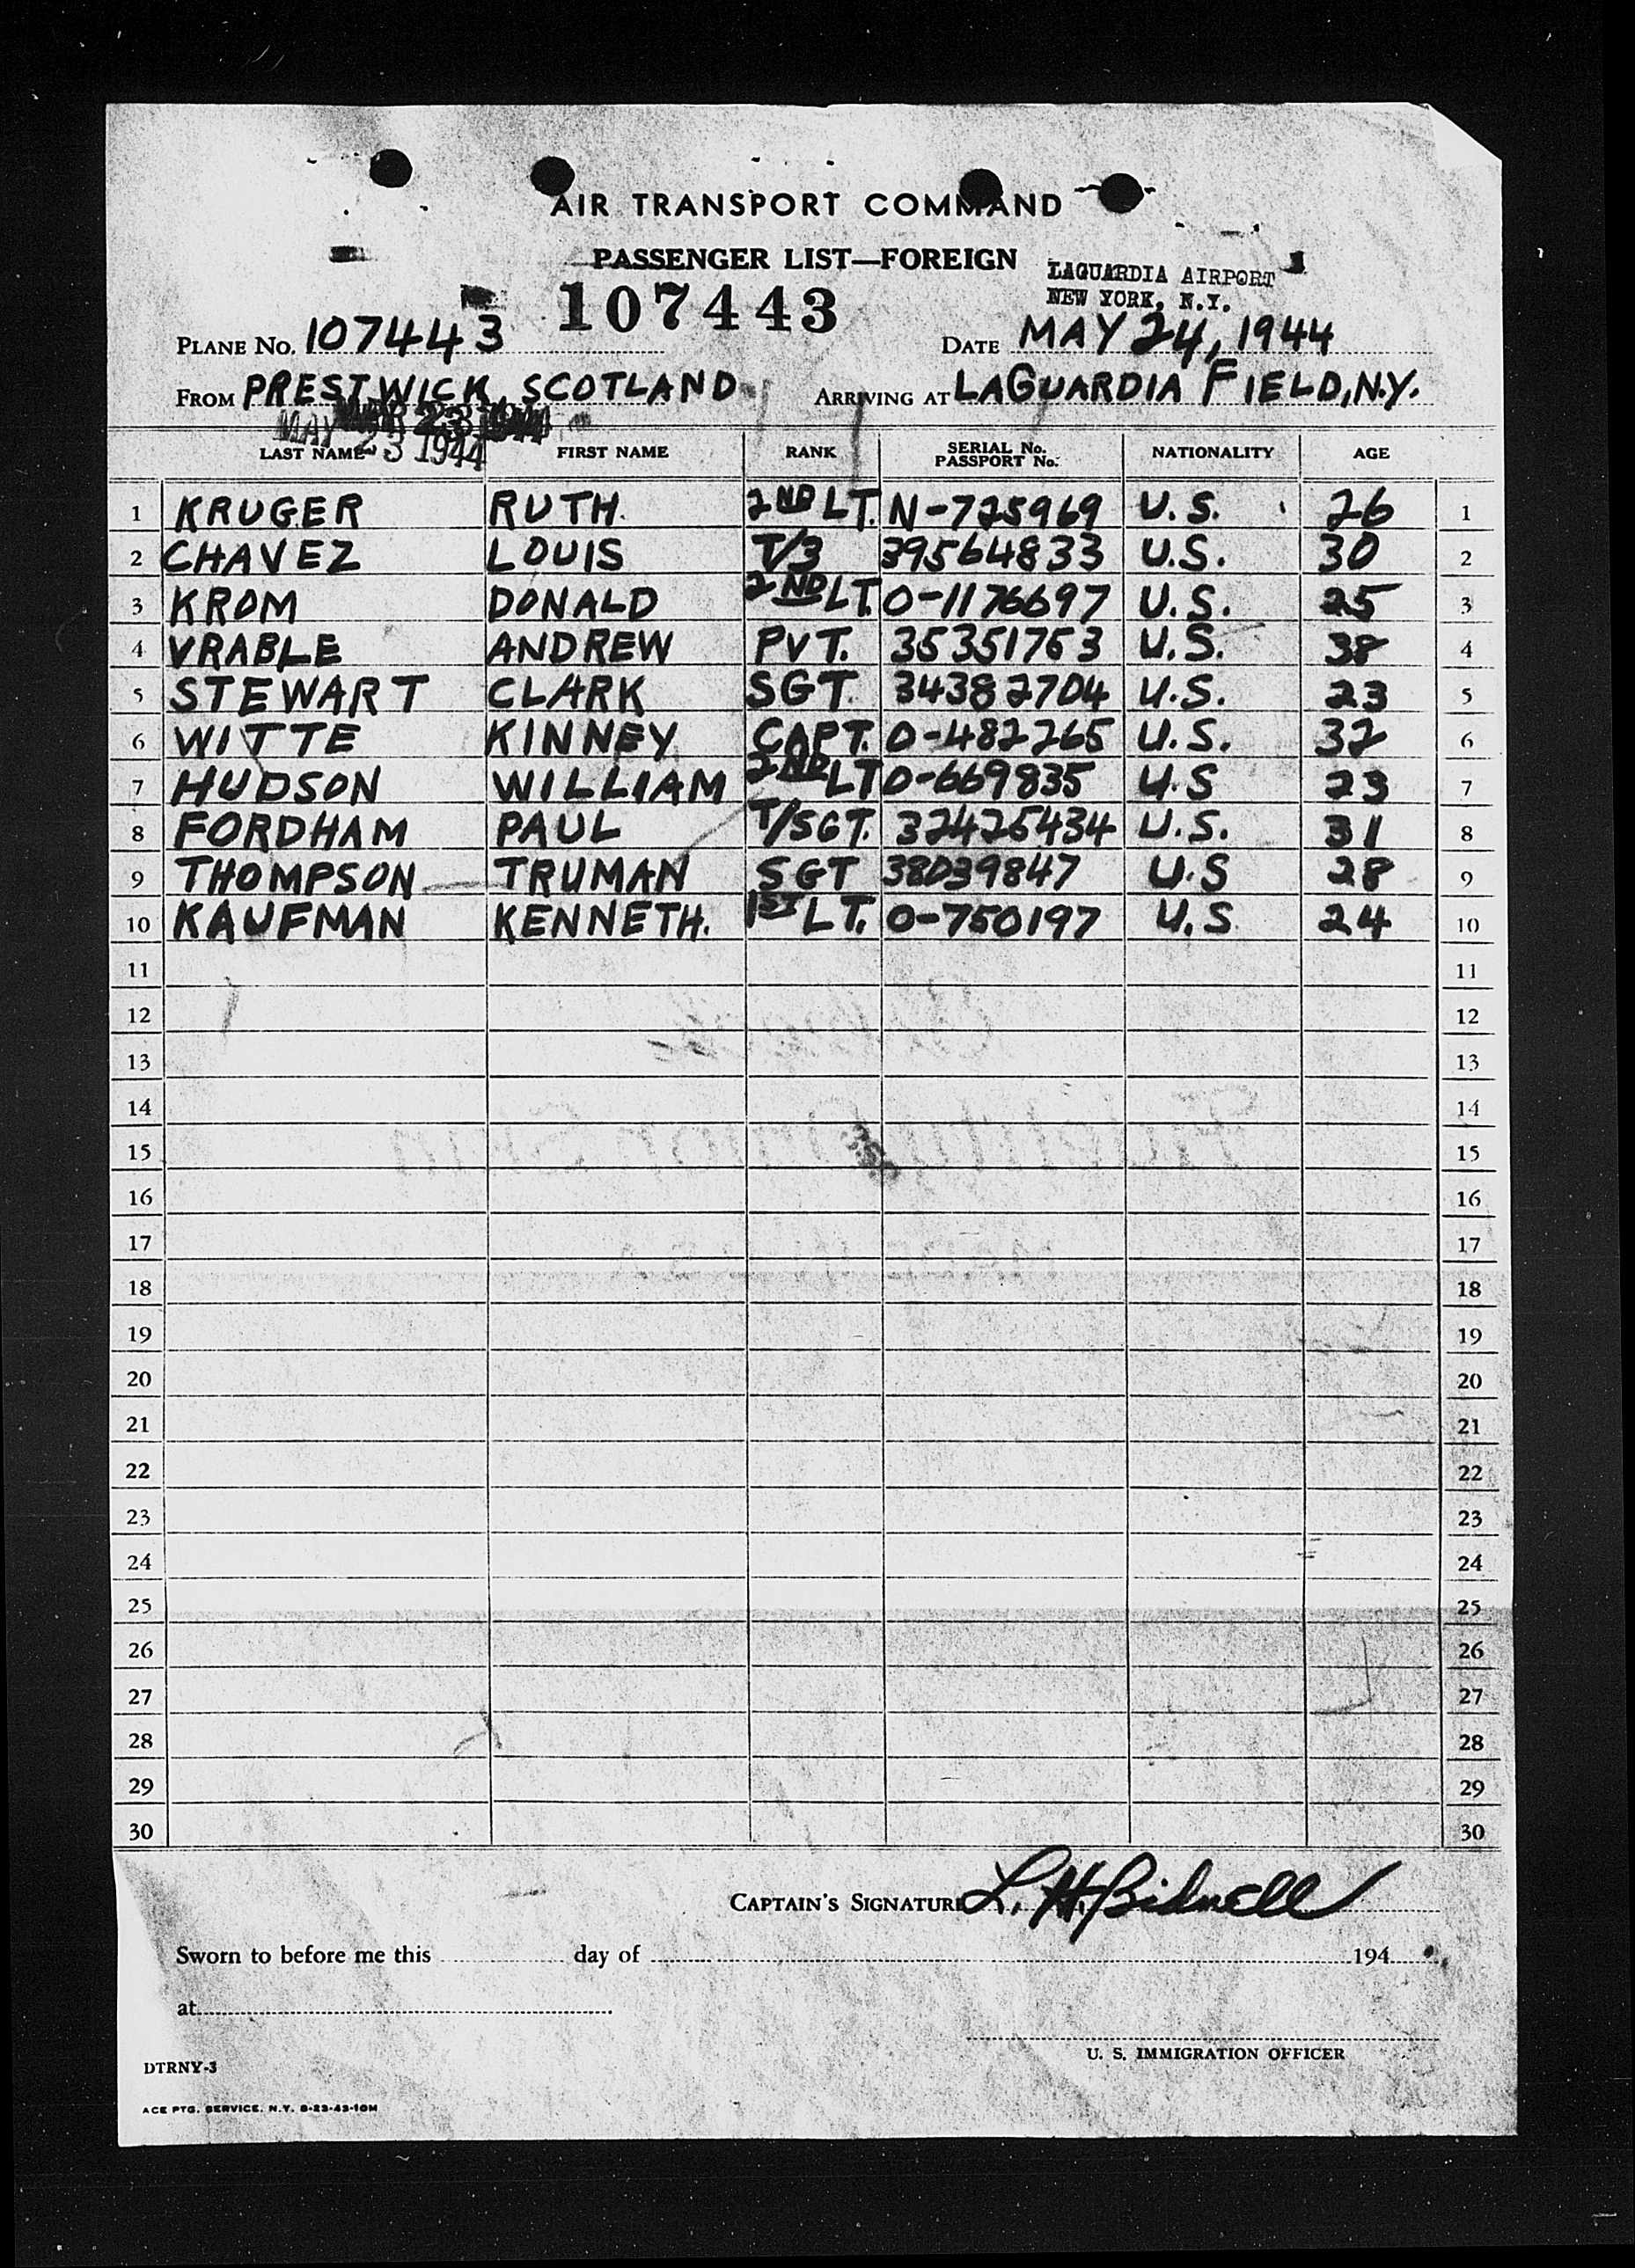 AIR TRANSPORT COMMAND
PASSENGER LIST—FOREIGN
LAGUARDIA AIRPORT
NEW YORK, N.Y.
107443
PLANE NO. 107443 DATE MAY 24, 1944
FROM PRESTWICK, SCOTLAND ARRIVING AT LAGUARDIA FIELD, N.Y.
MAY 23 1944
LAST NAME FIRST NAME RANK SERIAL No. PASSPORT No. NATIONALITY AGE
1 KRUGER RUTH. 2ND LT. N-725969 U.S. 26 1
2 CHAVEZ LOUIS T/3 39564833 U.S. 30 2
3 KROM DONALD 2ND LT. O-1176697 U.S. 25 3
4 VRABLE ANDREW PVT. 35351763 U.S. 38 4
5 STEWART CLARK SGT. 34382704 U.S. 23 5
6 WITTE KINNEY CAPT. O-482265 U.S. 32 6
7 HUDSON WILLIAM 2ND LT O-669835 U.S 23 7
8 FORDHAM PAUL T/SGT. 32425434 U.S. 31 8
9 THOMPSON TRUMAN SGT 38039847 U.S 28 9
10 KAUFMAN KENNETH. 1ST LT. O-750197 U.S 24 10
11 11
12 12
13 13
14 14
15 15
16 16
17 17
18 18
19 19
20 20
21 21
22 22
23 23
24 24
25 25
26 26
27 27
28 28
29 29
30 30
CAPTAIN'S SIGNATURE L. H. Bidwell
Sworn to before me this day of 194
at
U. S. IMMIGRATION OFFICER
DTRNY-3
ACE PTG. SERVICE, N.Y. 8-23-43-10M